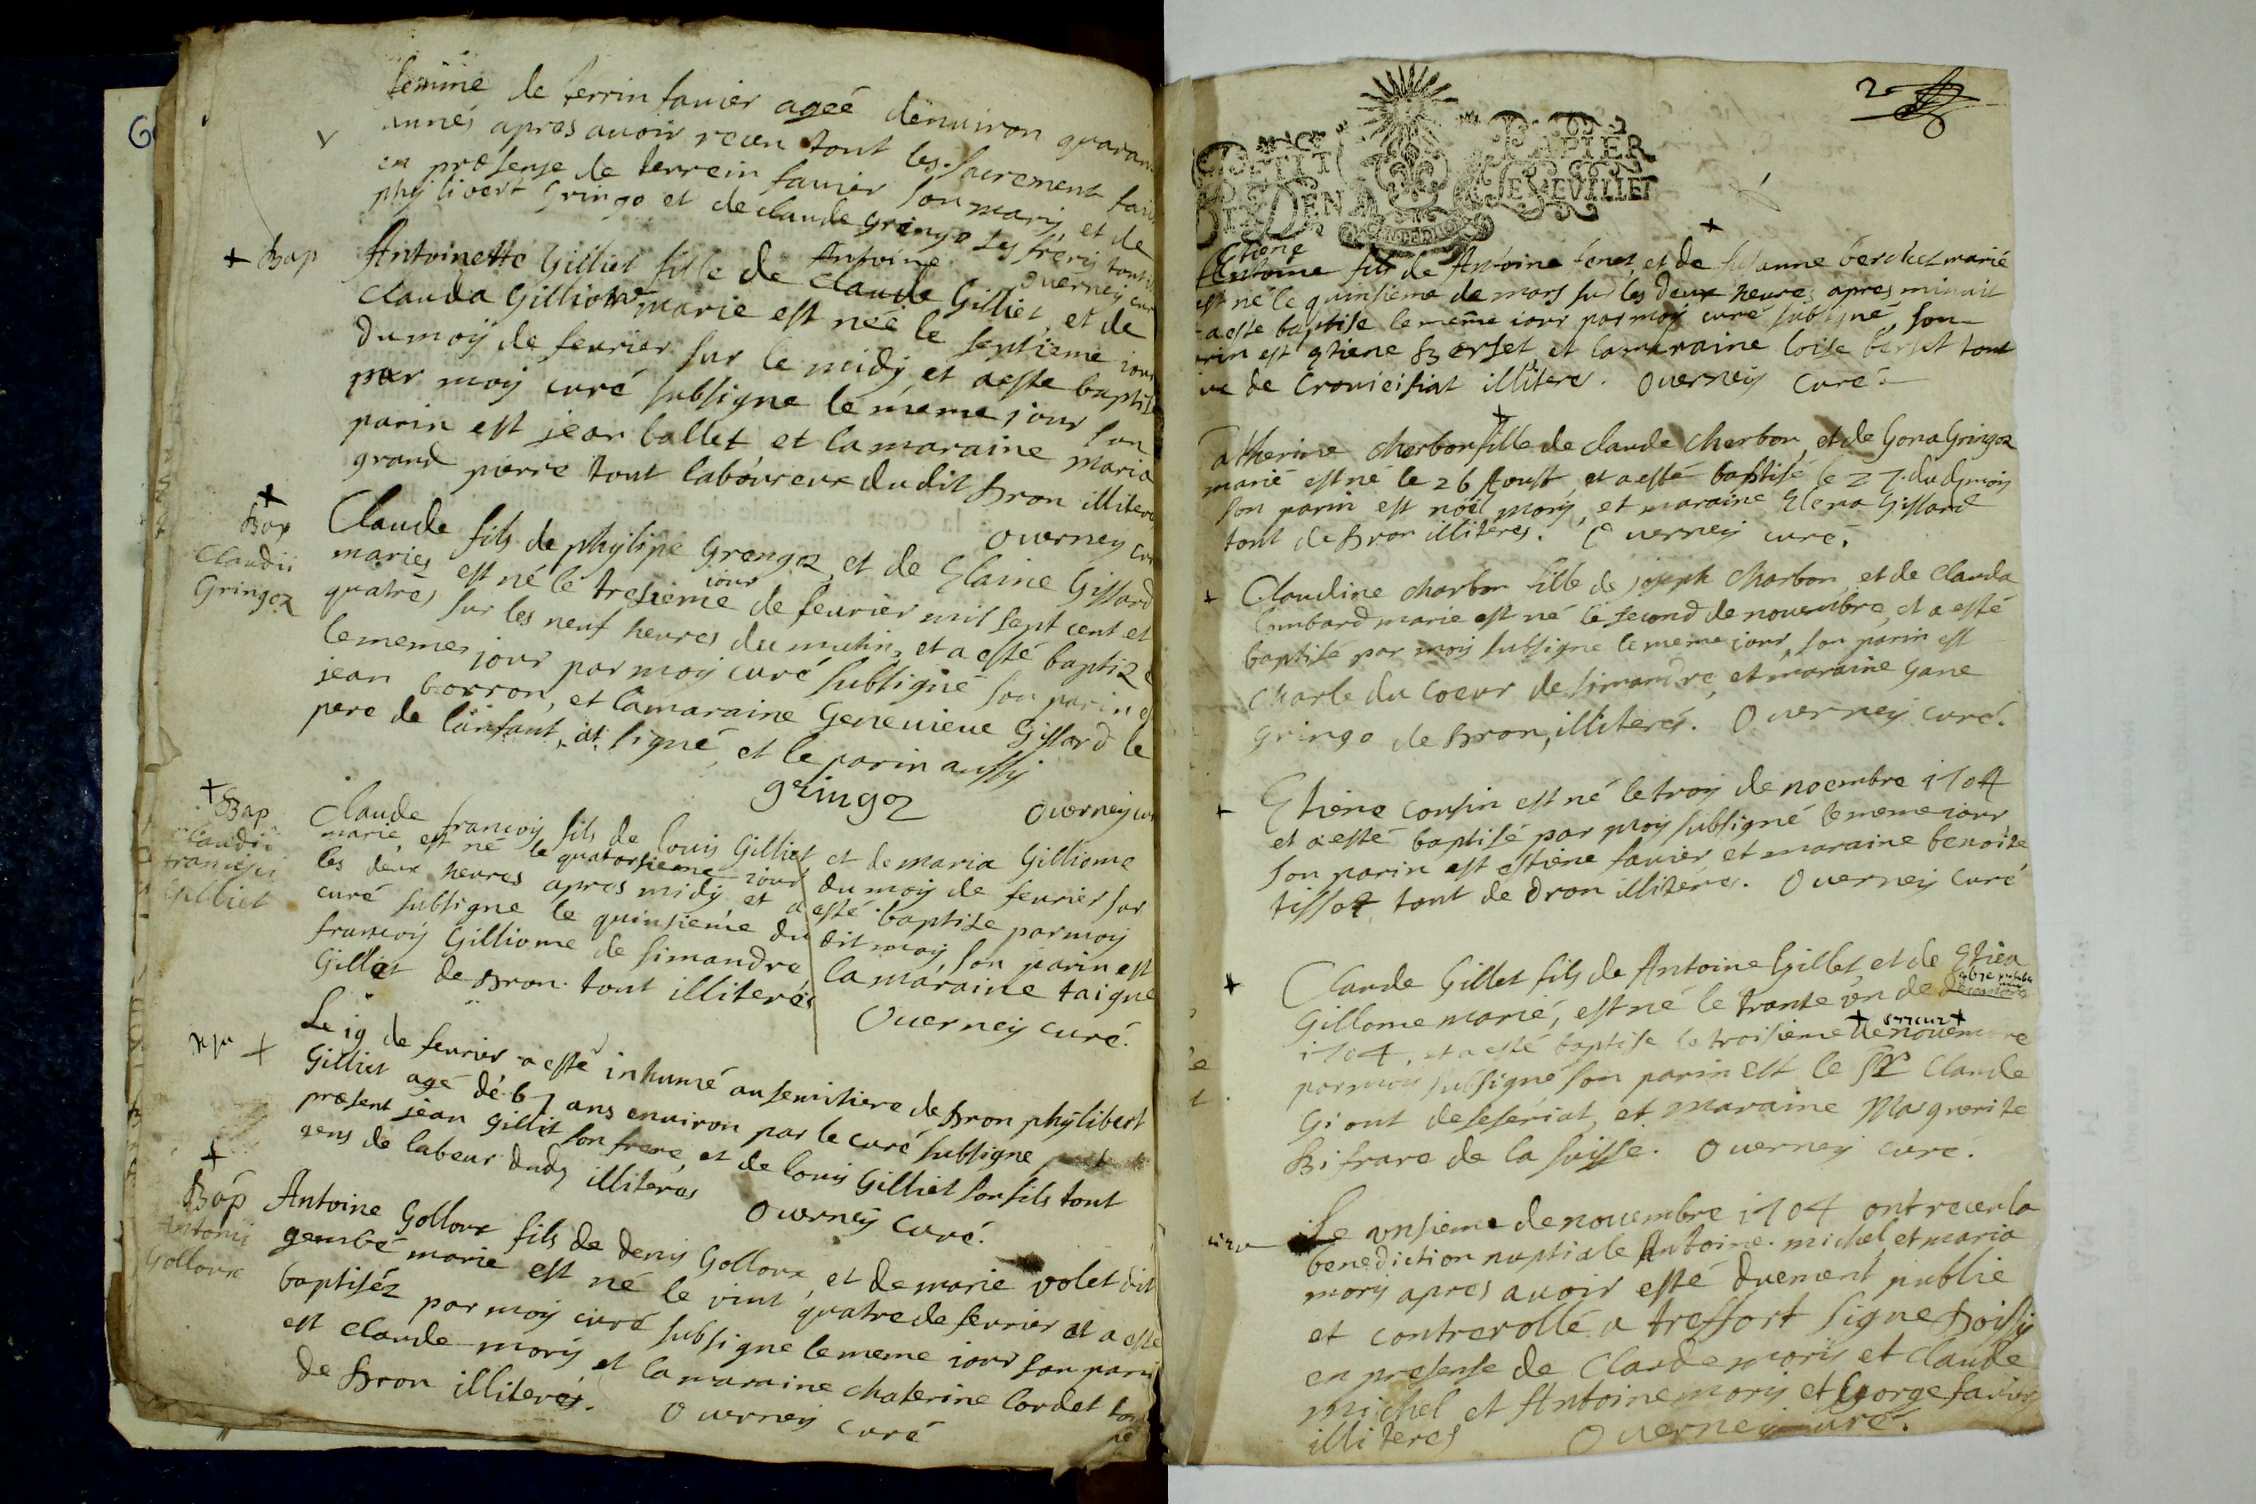 femme de perrin favier ageé denuiron quaran
annés apres auoir receu tout les sacrement fait
en presense de perrein favier son mary, et de
phylibert Gringo et de claude gringo ses freres tout
ouerney cur
+ Bap
Antoinette Gilliet fille de Antoine claude Gilliet, et de
clauda Gilliome marie est neé le septieme iour
du moy de feurier sur le midy et a esté baptisé
par moy curé subsigne le meme jour son
parin est jean ballet, et la maraine maria
grand pierre tout laboureur du dit Bron illiteré
ouerney cur
+
Bap
Claudii
Gringoz
Claude fils de phylipe Grengoz, et de Elaine Gissard
maries est né le tresieme iour de feurier mil sept cent et
quatrés sur les neuf heures du matin, et a esté baptizé
le memes jour par moy curé subsigné son parin e
jean borron, et la maraine Genevieve Gissard le
pere de lanfant, at signé, et le parin aussy
gringoz
ouerney cu
+ Bap
Claudii
francisci
Gilliet
Claude francois fils de louis Gilliet et de maria Gilliome
marie, est né le quatorsieme iour du moy de feurier sur
les deux heures apres midy, et a esté baptise par moy
curé subsigne le quinsieme du dit moy son parin est
francois Gilliome de simandre, la maraine taigne
Gilliet de Bron tout illiterés
Ouerney curé.
+
Le 19 de feurier a esté inhumé au semitiere de Bron phylibert
Gilliet agé de 67 ans enuiron par le curé subsigne
present jean Gilliet son frere, et de louis Gilliet son fils tout
gens de labeur dudt illiterés
Ouerney curé.
+
Bap
Antonii
Golloux
Antoine Golloux fils de denis Golloux, et de marie volet dit
gembé marie est né le vint quatre de feurier et a esté
baptiséz par moy curé subsigne le meme iour son parin
est claude mory et la maraine chaterine Cordet tou
de Bron illiterés.
ouerney curé
2
PETIT PAPIER
SIX DEN DE SEVILLET
+
Etiene
Antoine fils de Antoine fenet, et de susanne berchet marié
est né le quinsieme de mars sur les deux heures apres minuit
a este baptise le meme iour par moy curé subsigné, son
rin est etiene Borset, et la maraine loise borset tout
de Crouicisiat illiteres. Ouerney curé.
+
Catherine cherbon fille de claude cherbon, et de Gona Gringoz
marié est né le 26 Aoust, et a esté baptisé le 27 dud moy
son parin est noël mory, et maraine Elena Gissard
tout de Bron illiteres. Ouerney curé.
+ Claudine charbon fille de joseph charbon, et de clauda
Combard marie est né le second de nouembre, et a esté
baptise par moy subsigne le meme jour, son parin est
Charle du Coeur de simandre, et maraine gane
gringo de Bron, illiterés. Ouerney curé.
+ Etiene cousin est né le troy de noembre 1704
et a esté baptisé par moy subsigné le meme iour
son parin est estiene favier et maraine benoite
tissot, tout de Bron illiterés. Ouerney curé
+ Claude Gillet fils de Antoine Gillet, et de Etien
Gillome marié, est né le trante vn de
erreur +
1704, et a esté baptise le troisieme de nouembre
par moy subsigné son parin est le Sr Claude
Giout de seseriat, et maraine Marguerite
Bifrare de la suisse. Ouerney curé.
Le onsieme de nouembre 1704 ont receu la
benediction nuptiale Antoine michel et maria
mory apres auoir esté duement publie
et contrerollé a treffort signe Boissy
en presense de Claude mory et claude
michel et Antoine mory et george favier
illiteres Ouerney curé.